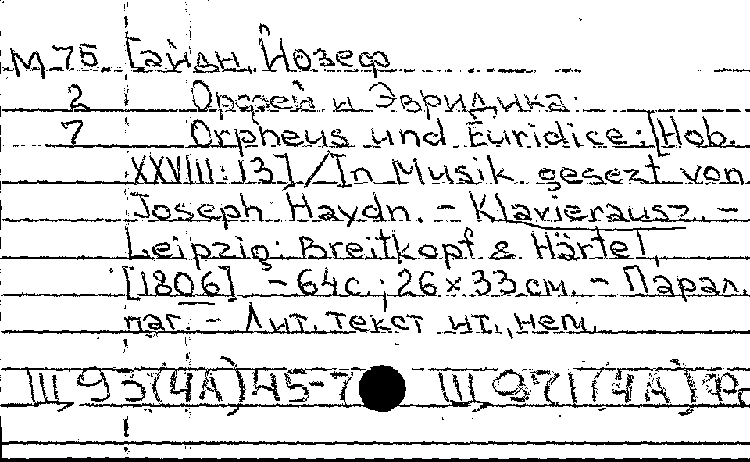 М 75 Гайдн, Йозеф
2 Орфей и Эвридика:
7 Orpheus und Euridice: [Hob.
XXVIII: 13] / In Musik gesezt von
Joseph Haydn. - Klavierausz. -
Leipzig: Breitkopf & Härtel,
[1806] - 64 с.; 26 × 33 см. - Парал.
паг. - Лит. текст ит., нем.
Щ 93(4А)Н5-7 Щ 971(4А)